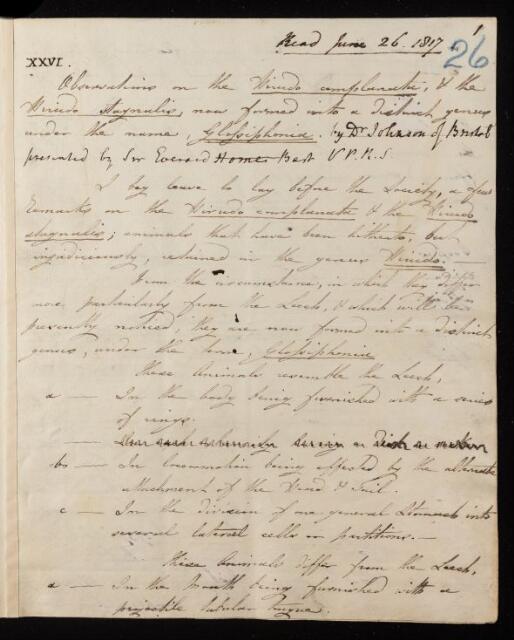 Read June 26. 1817.
1
26
XXVI.
Observations on the Hirudo complanata, & the
Hirudo stagnalis, now formed into a distinct genus
under the name, Glossiphonia. by Dr Johnson of Bristol
presented by Sir Everard Home Bart V.P.R.S
I beg leave to lay before the Society, a few
remarks on the Hirudo complanata & the Hirudo
stagnalis; animals that have been hitherto, but
injudiciously, retained in the genus Hirudo.
From the circumstances, in which they differ
more particularly from the Leech, & which will be
presently noticed, they are now formed into a distinct
genus, under the term, Glossiphonia
These Animals resemble the Leech,
a — In the body being furnished with a series
of rings.
—
b — In locomotion being effected by the alternate
attachment of the Head & Tail.
c — In the division of one general Stomach into
several lateral cells or partitions. —
These Animals differ from the Leech,
a — In the Mouth being furnished with a
projectile tubular tongue.